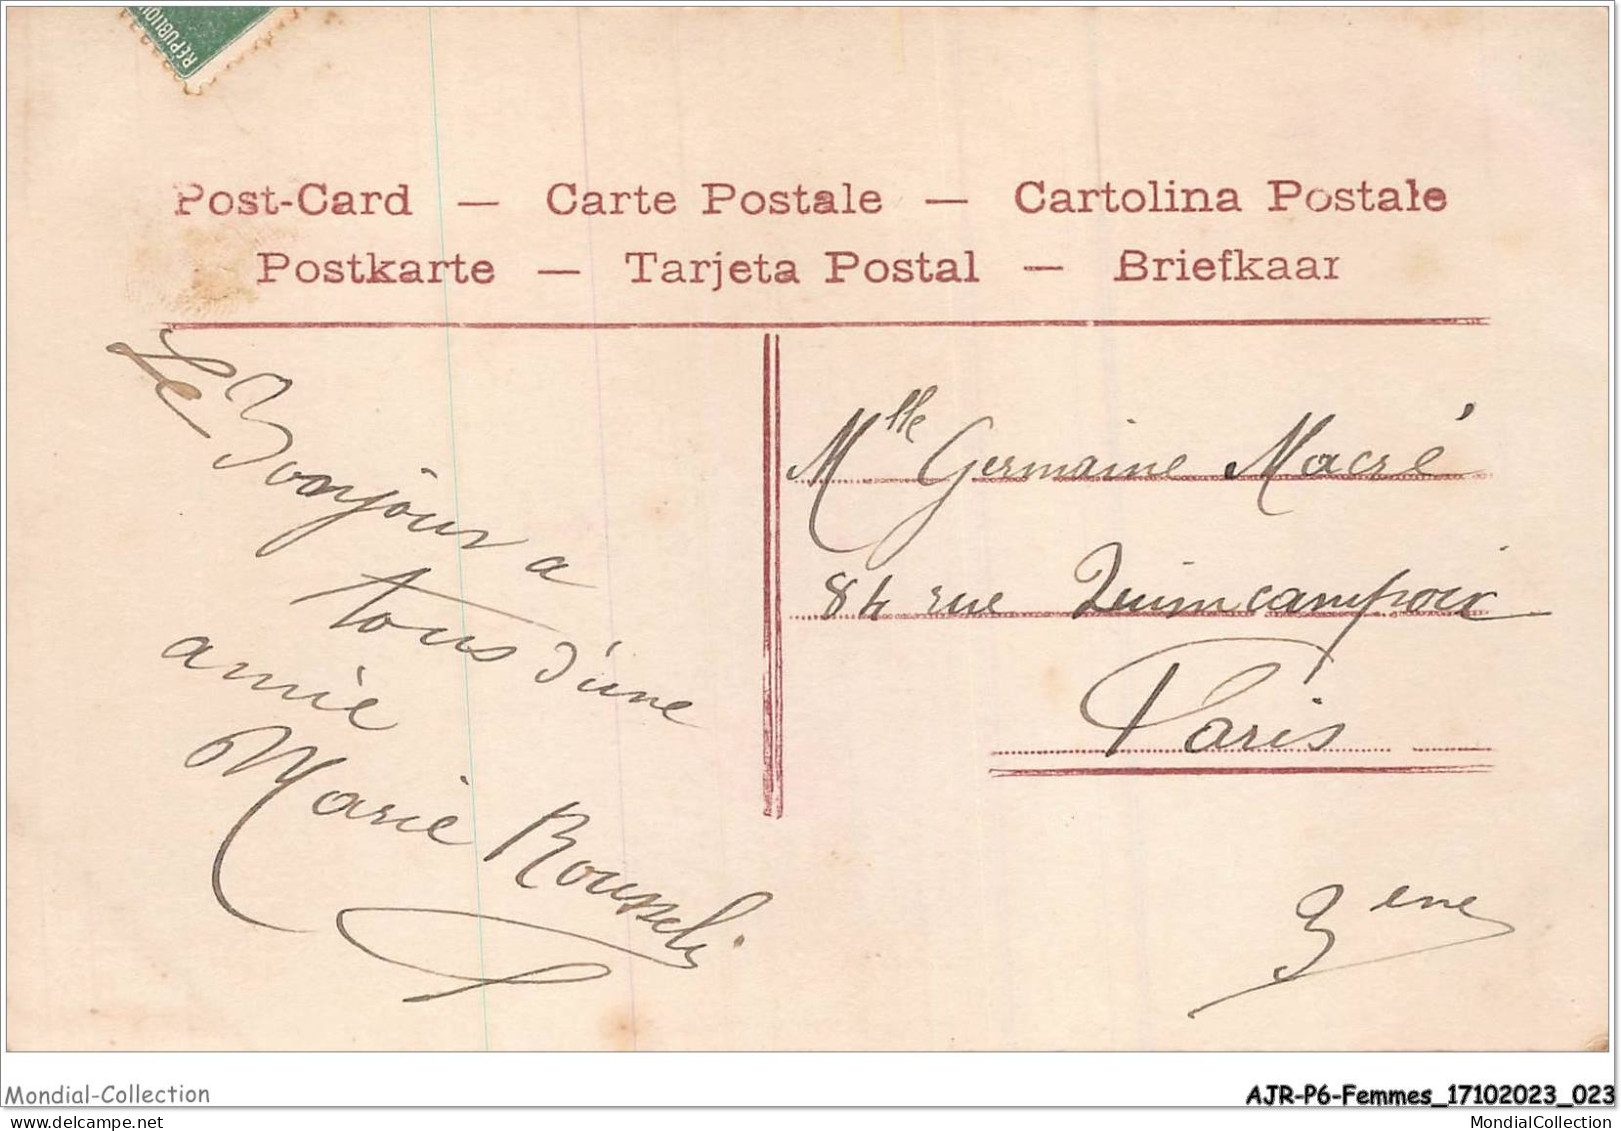 RÉPUBLIQU
Post-Card — Carte Postale — Cartolina Postale
Postkarte — Tarjeta Postal — Briefkaar
Le Bonjour a
tous d'une
amie
Marie Rousseli
Mlle Germaine Macré
84 rue Quincampoix
Paris
3eme
Mondial-Collection
AJR-P6-Femmes_17102023_023
MondialCollection